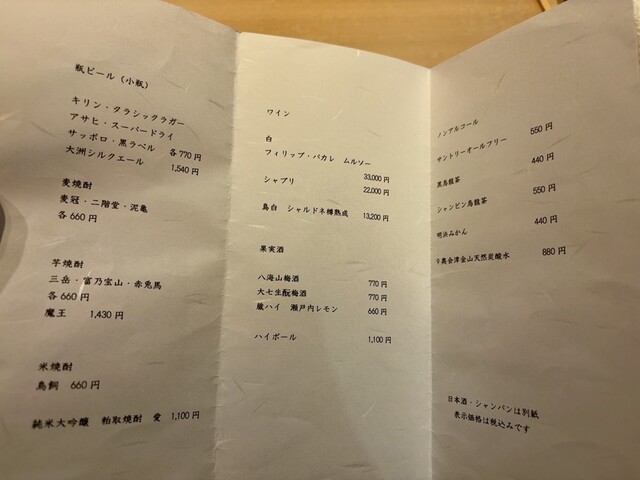 瓶ビール（小瓶）
キリン・クラシックラガー
アサヒ・スーパードライ
サッポロ・黒ラベル 各770円
大洲シルクエール 1,540円
麦焼酎
麦冠・二階堂・泥亀
各660円
芋焼酎
三岳・富乃宝山・赤兎馬
各660円
魔王 1,430円
米焼酎
鳥飼 660円
純米大吟醸 粕取焼酎 愛 1,100円
ワイン
白
フィリップ・パカレ ムルソー
33,000円
シャブリ 22,000円
島白 シャルドネ樽熟成 13,200円
果実酒
八海山梅酒 770円
大七生酛梅酒 770円
蔵ハイ 瀬戸内レモン 660円
ハイボール 1,100円
ノンアルコール
サントリーオールフリー 550円
黒烏龍茶 440円
シャンピン烏龍茶 550円
明浜みかん 440円
奥会津金山天然炭酸水 880円
日本酒・シャンパンは別紙
表示価格は税込みです